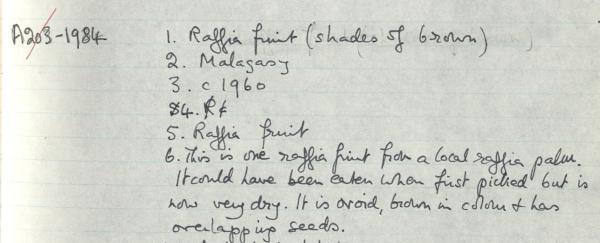 A203-1984 1. Raffia fruit (shades of brown)
2. Malagasy
3. c 1960
4.
5. Raffia fruit
6. This is one raffia fruit from a local raffia palm.
It could have been eaten when first picked but is
now very dry. It is ovoid, brown in colour & has
overlapping seeds.